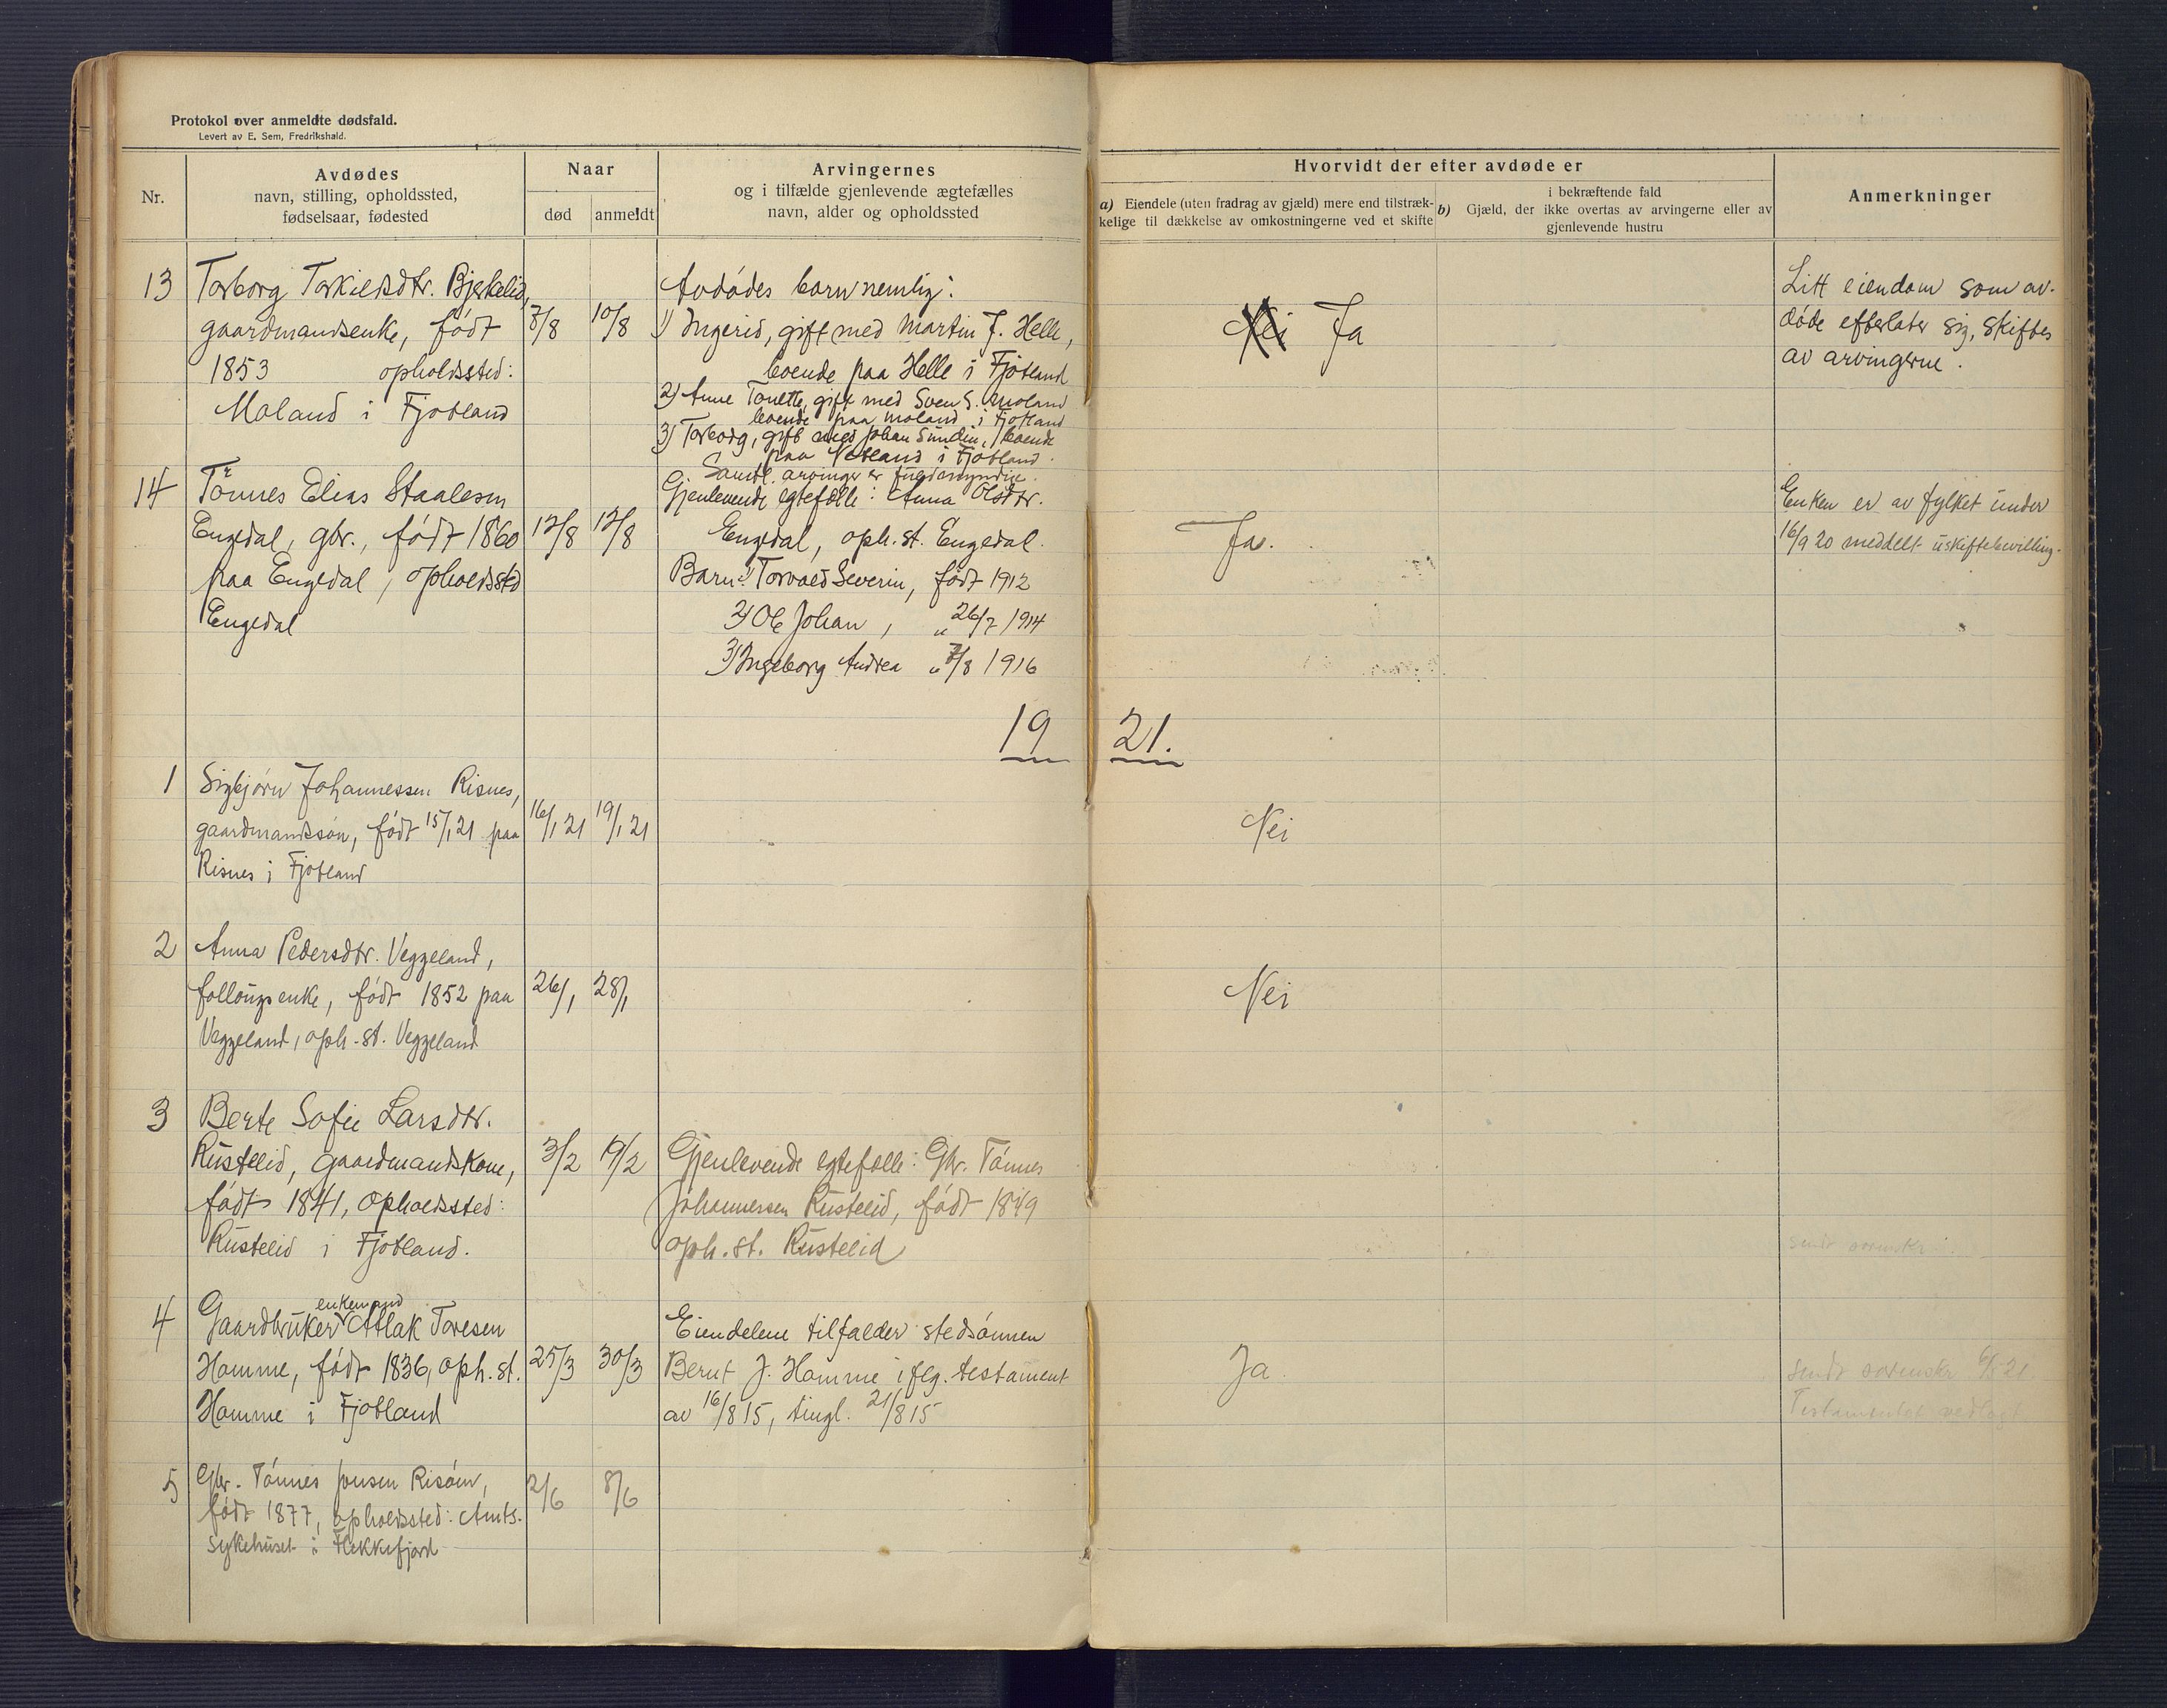 Protokol over anmeldte dødsfald.
Levert av E. Sem, Fredrikshald.
Nr.
Avdødes
navn, stilling, opholdssted,
fødselsaar, fødested
Naar
død
anmeldt
Arvingernes
og i tilfælde gjenlevende ægtefælles
navn, alder og opholdssted
Hvorvidt der efter avdøde er
a) Eiendele (uten fradrag av gjæld) mere end tilstræk-
kelige til dækkelse av omkostningerne ved et skifte
i bekræftende fald
b) Gjæld, der ikke overtas av arvingerne eller av
gjenlevende hustru
Anmerkninger
13
Torborg Torkielsdtr. Bjerkelid,
gaardmandsenke, født
1853 opholdssted:
Moland i Fjotland
7/8
10/8
Avdødes barn nemlig:
1) Ingerid, gift med Martin J. Helle,
boende paa Helle i Fjotland
2) Anne Tonette, gift med Sven S. Moland
boende paa Moland i Fjotland
3) Torborg, gift med Johan Sundin, boende
paa Netland i Fjotland.
Samtl. arvinger er fuldmyndige.
Nei Ja
Litt eiendom som av-
døde efterlater sig, skiftes
av arvingerne.
14
Tønnes Elias Staalesen
Engedal, gbr., født 1860
paa Engedal, opholdssted
Engedal
12/8
12/8
Gjenlevende egtefælle: Anna Olsdtr.
Engedal, oph. st. Engedal.
Barn: 1) Torvald Severin, født 1912
2) Ole Johan, " 26/7 1914
3) Ingeborg Andrea " 7/8 1916
Ja.
Enken er av fylket under
16/9 20 meddelt uskiftebevilling.
19 21.
1
Sigbjørn Johannessen Risnes,
gaardmandssøn, født 15/1 21 paa
Risnes i Fjotland
16/1 21
19/1 21
Nei
2
Anna Pedersdtr. Veggeland,
follougsenke, født 1852 paa
Veggeland, oph. st. Veggeland
26/1
28/1
Nei
3
Berte Sofie Larsdtr.
Rustelid, gaardmandskone,
født 1841, opholdssted:
Rustelid i Fjotland.
3/2
19/2
Gjenlevende egtefælle: Gbr. Tønnes
Johannesen Rustelid, født 1849
oph. st. Rustelid
sendt sorenskr.
4
enkemand
Gaardbruker Atlak Toresen
Homme, født 1836, oph. st.
Homme i Fjotland
25/3
30/3
Eiendelene tilfalder stedsønnen
Bernt J. Homme ifølg. testament
av 16/8 15, tingl. 21/8 15
Ja
sendt sorenskr. 6/5 21.
Testamentet vedlagt
5
Gbr. Tønnes Jonsen Risøen,
født 1877, opholdssted: Amts-
sykehuset i Flekkefjord
2/6
8/6